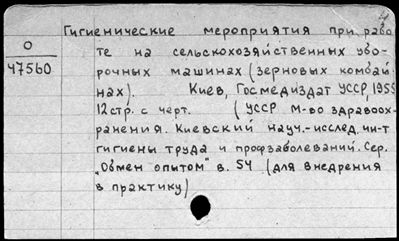 Гигиенические мероприятия при рабо-
те на сельскохозяйственных убо-
рочных машинах (зерновых комбай-
нах). Киев, Госмедиздат УССР, 1955
12 стр. с черт. (УССР М-во здравоох-
ранения. Киевский науч.-исслед. ин-т
гигиены труда и профзаболеваний. Сер.
„Обмен опытом" в. 54 (для внедрения
в практику)
О
47560